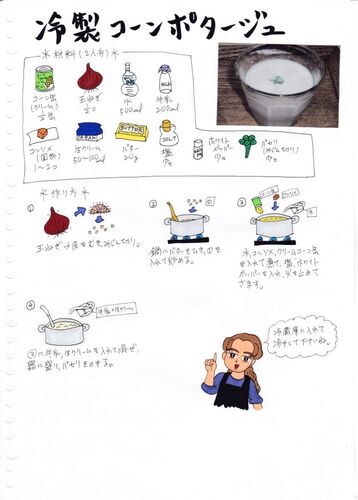 冷製コーンポタージュ
※材料(2人分)※
コーン缶
(クリーム)
玉ねぎ
水
500ml
牛乳
200ml
MILK
コンソメ
(固形)
1〜2コ
生クリーム
50〜100ml
バター
20g
BUTTER
SALT
塩
少々
ホワイト
ペッパー
少々
パセリ
(みじん切り)
少々
※作り方※
①
玉ねぎは皮をむき、みじん切り。
②
鍋にバターをひき、①を
入れて炒める。
③
水、コンソメ、クリームコーン缶
を入れて煮て、塩、ホワイト
ペッパーを入れ、火を止めて
さます。
④
牛乳、生クリーム
③に牛乳、生クリームを入れて混ぜ、
器に盛り、パセリをのせる。
冷蔵庫に入れて
冷やして下さいね。